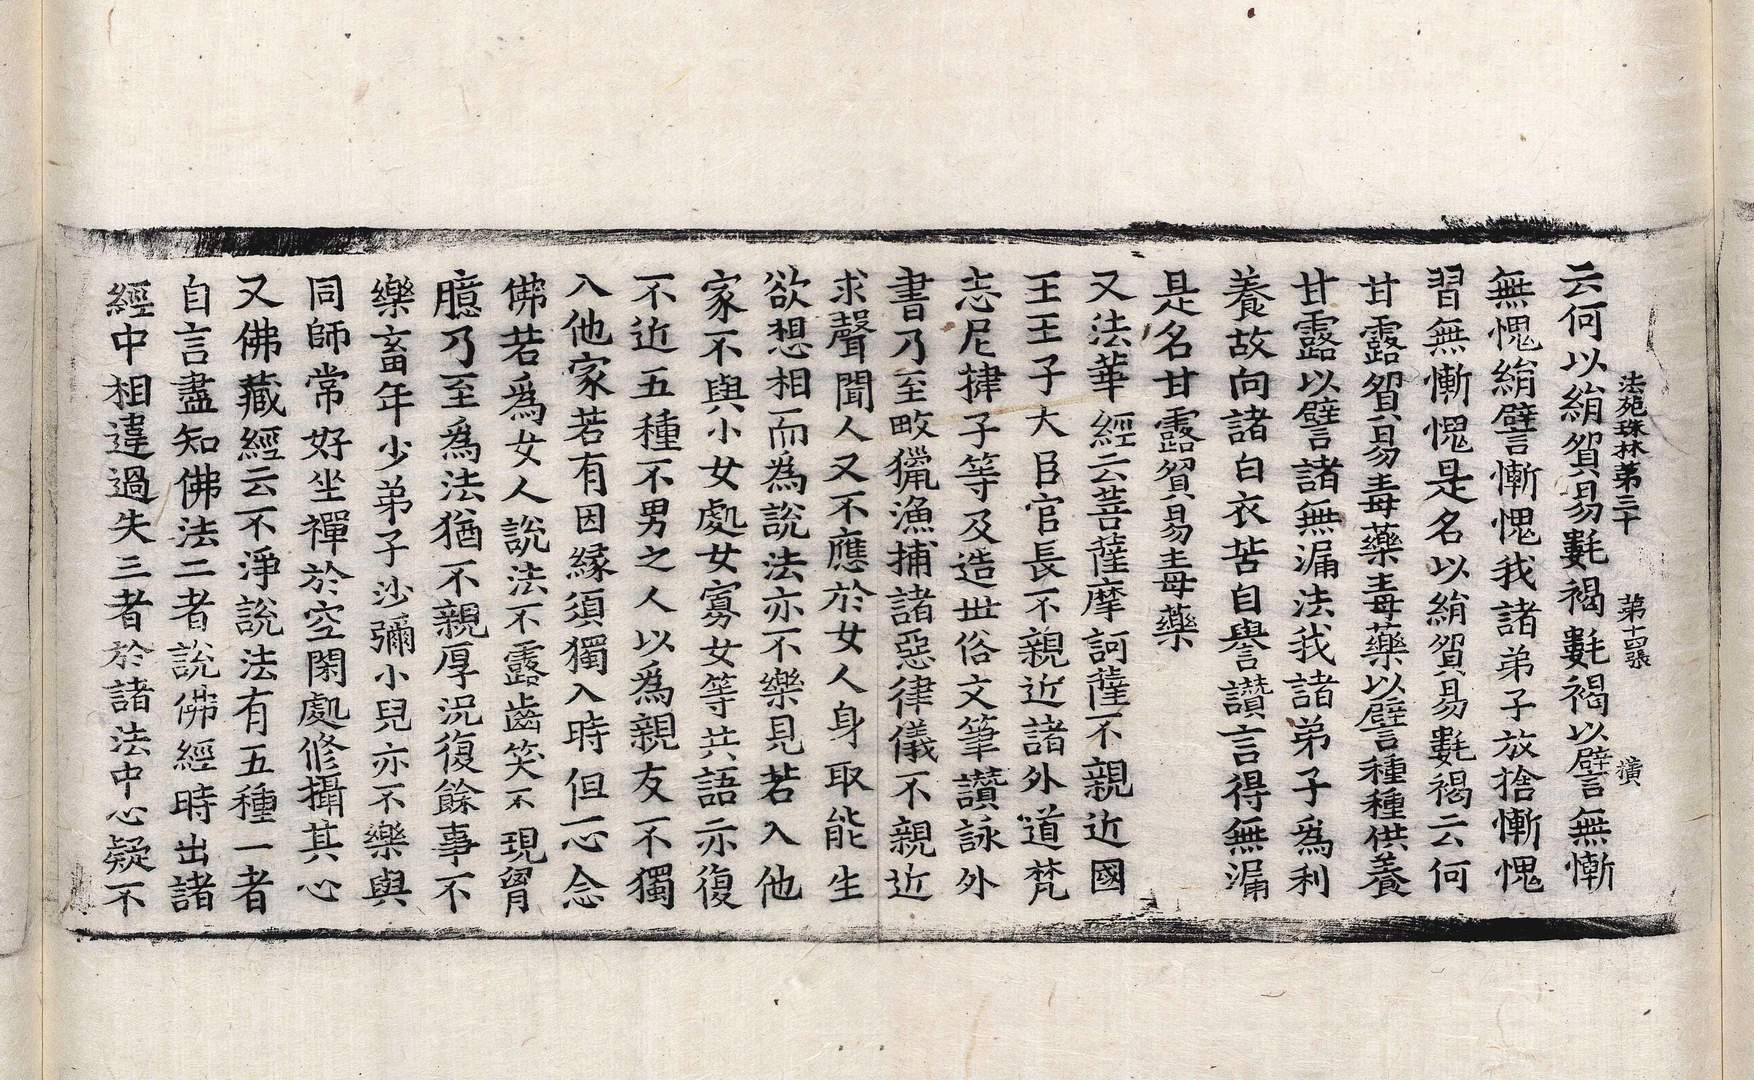 云何以絹貿易㲲褐㲲褐以譬無慚
法苑珠林第三十　第十四張　橫
無愧絹譬慚愧我諸弟子放捨慚愧
習無慚愧是名以絹貿易㲲褐云何
甘露貿易毒藥毒藥以譬種種供養
甘露以譬諸無漏法我諸弟子爲利
養故向諸白衣苦自譽讚言得無漏
是名甘露貿易毒藥
又法華經云菩薩摩訶薩不親近國
王王子大臣官長不親近諸外道梵
志尼揵子等及造世俗文筆讚詠外
書乃至畋獵漁捕諸惡律儀不親近
求聲聞人又不應於女人身取能生
欲想相而爲說法亦不樂見若入他
家不與小女處女寡女等共語亦復
不近五種不男之人以爲親友不獨
入他家若有因緣須獨入時但一心念
佛若爲女人說法不露齒笑不現胷
臆乃至爲法猶不親厚況復餘事不
樂畜年少弟子沙彌小兒亦不樂與
同師常好坐禪於空閑處修攝其心
又佛藏經云不淨說法有五種一者
自言盡知佛法二者說佛經時出諸
經中相違過失三者於諸法中心疑不